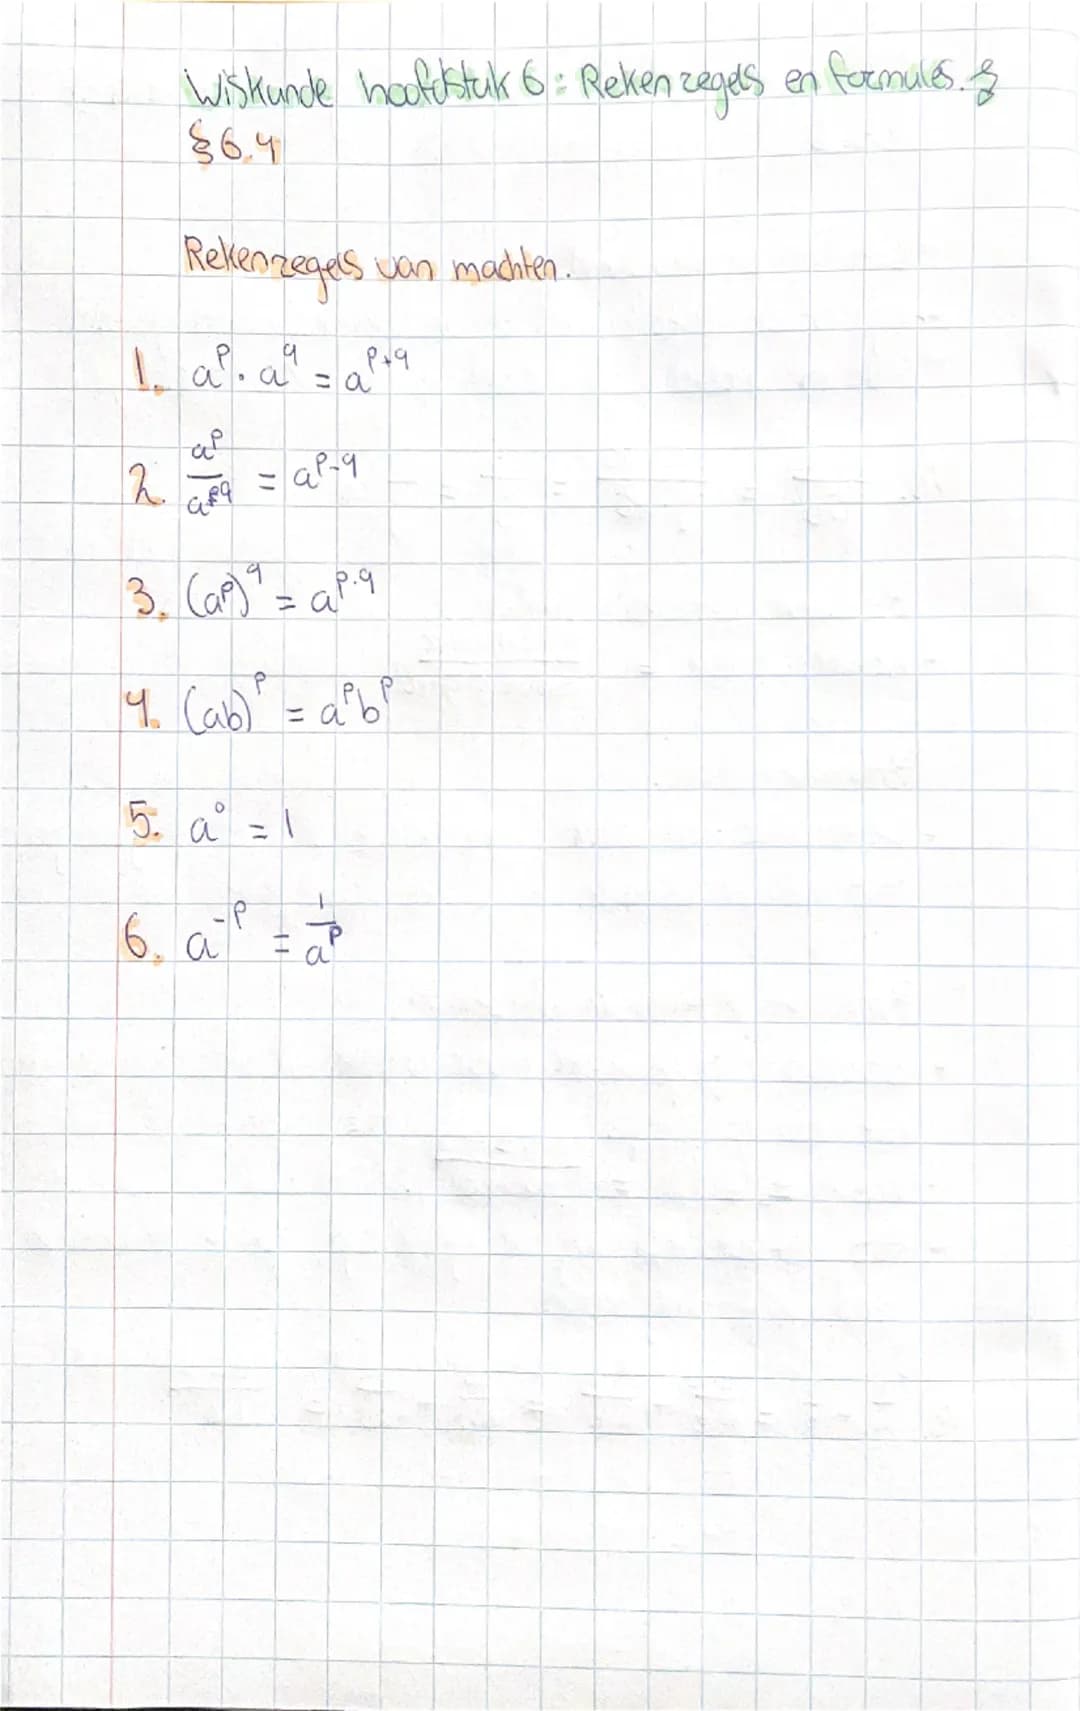 Wiskunde hoofdstuk 6: Rekenregels en formules.
§6.4
Rekenregels van machten.
1. a^p · a^q = a^(p+q)
2. a^p / a^q = a^(p-q)
3. (a^p)^q = a^(p·q)
4. (ab)^p = a^p b^p
5. a^0 = 1
6. a^(-p) = 1 / a^p